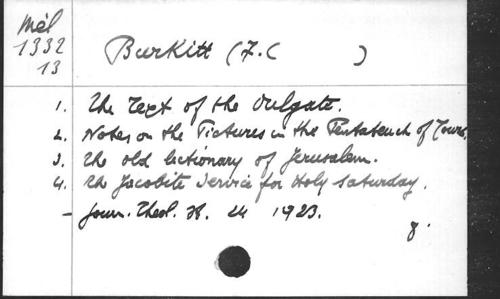 Mél
1332
13
Burkitt (F.C )
1. The Text of the Vulgate.
2. Notes on the Pictures in the Pentateuch of Tours.
3. The old lectionary of Jerusalem.
4. The Jacobite Service for Holy Saturday.
- Journ. Theol. St. 24 1923.
8.